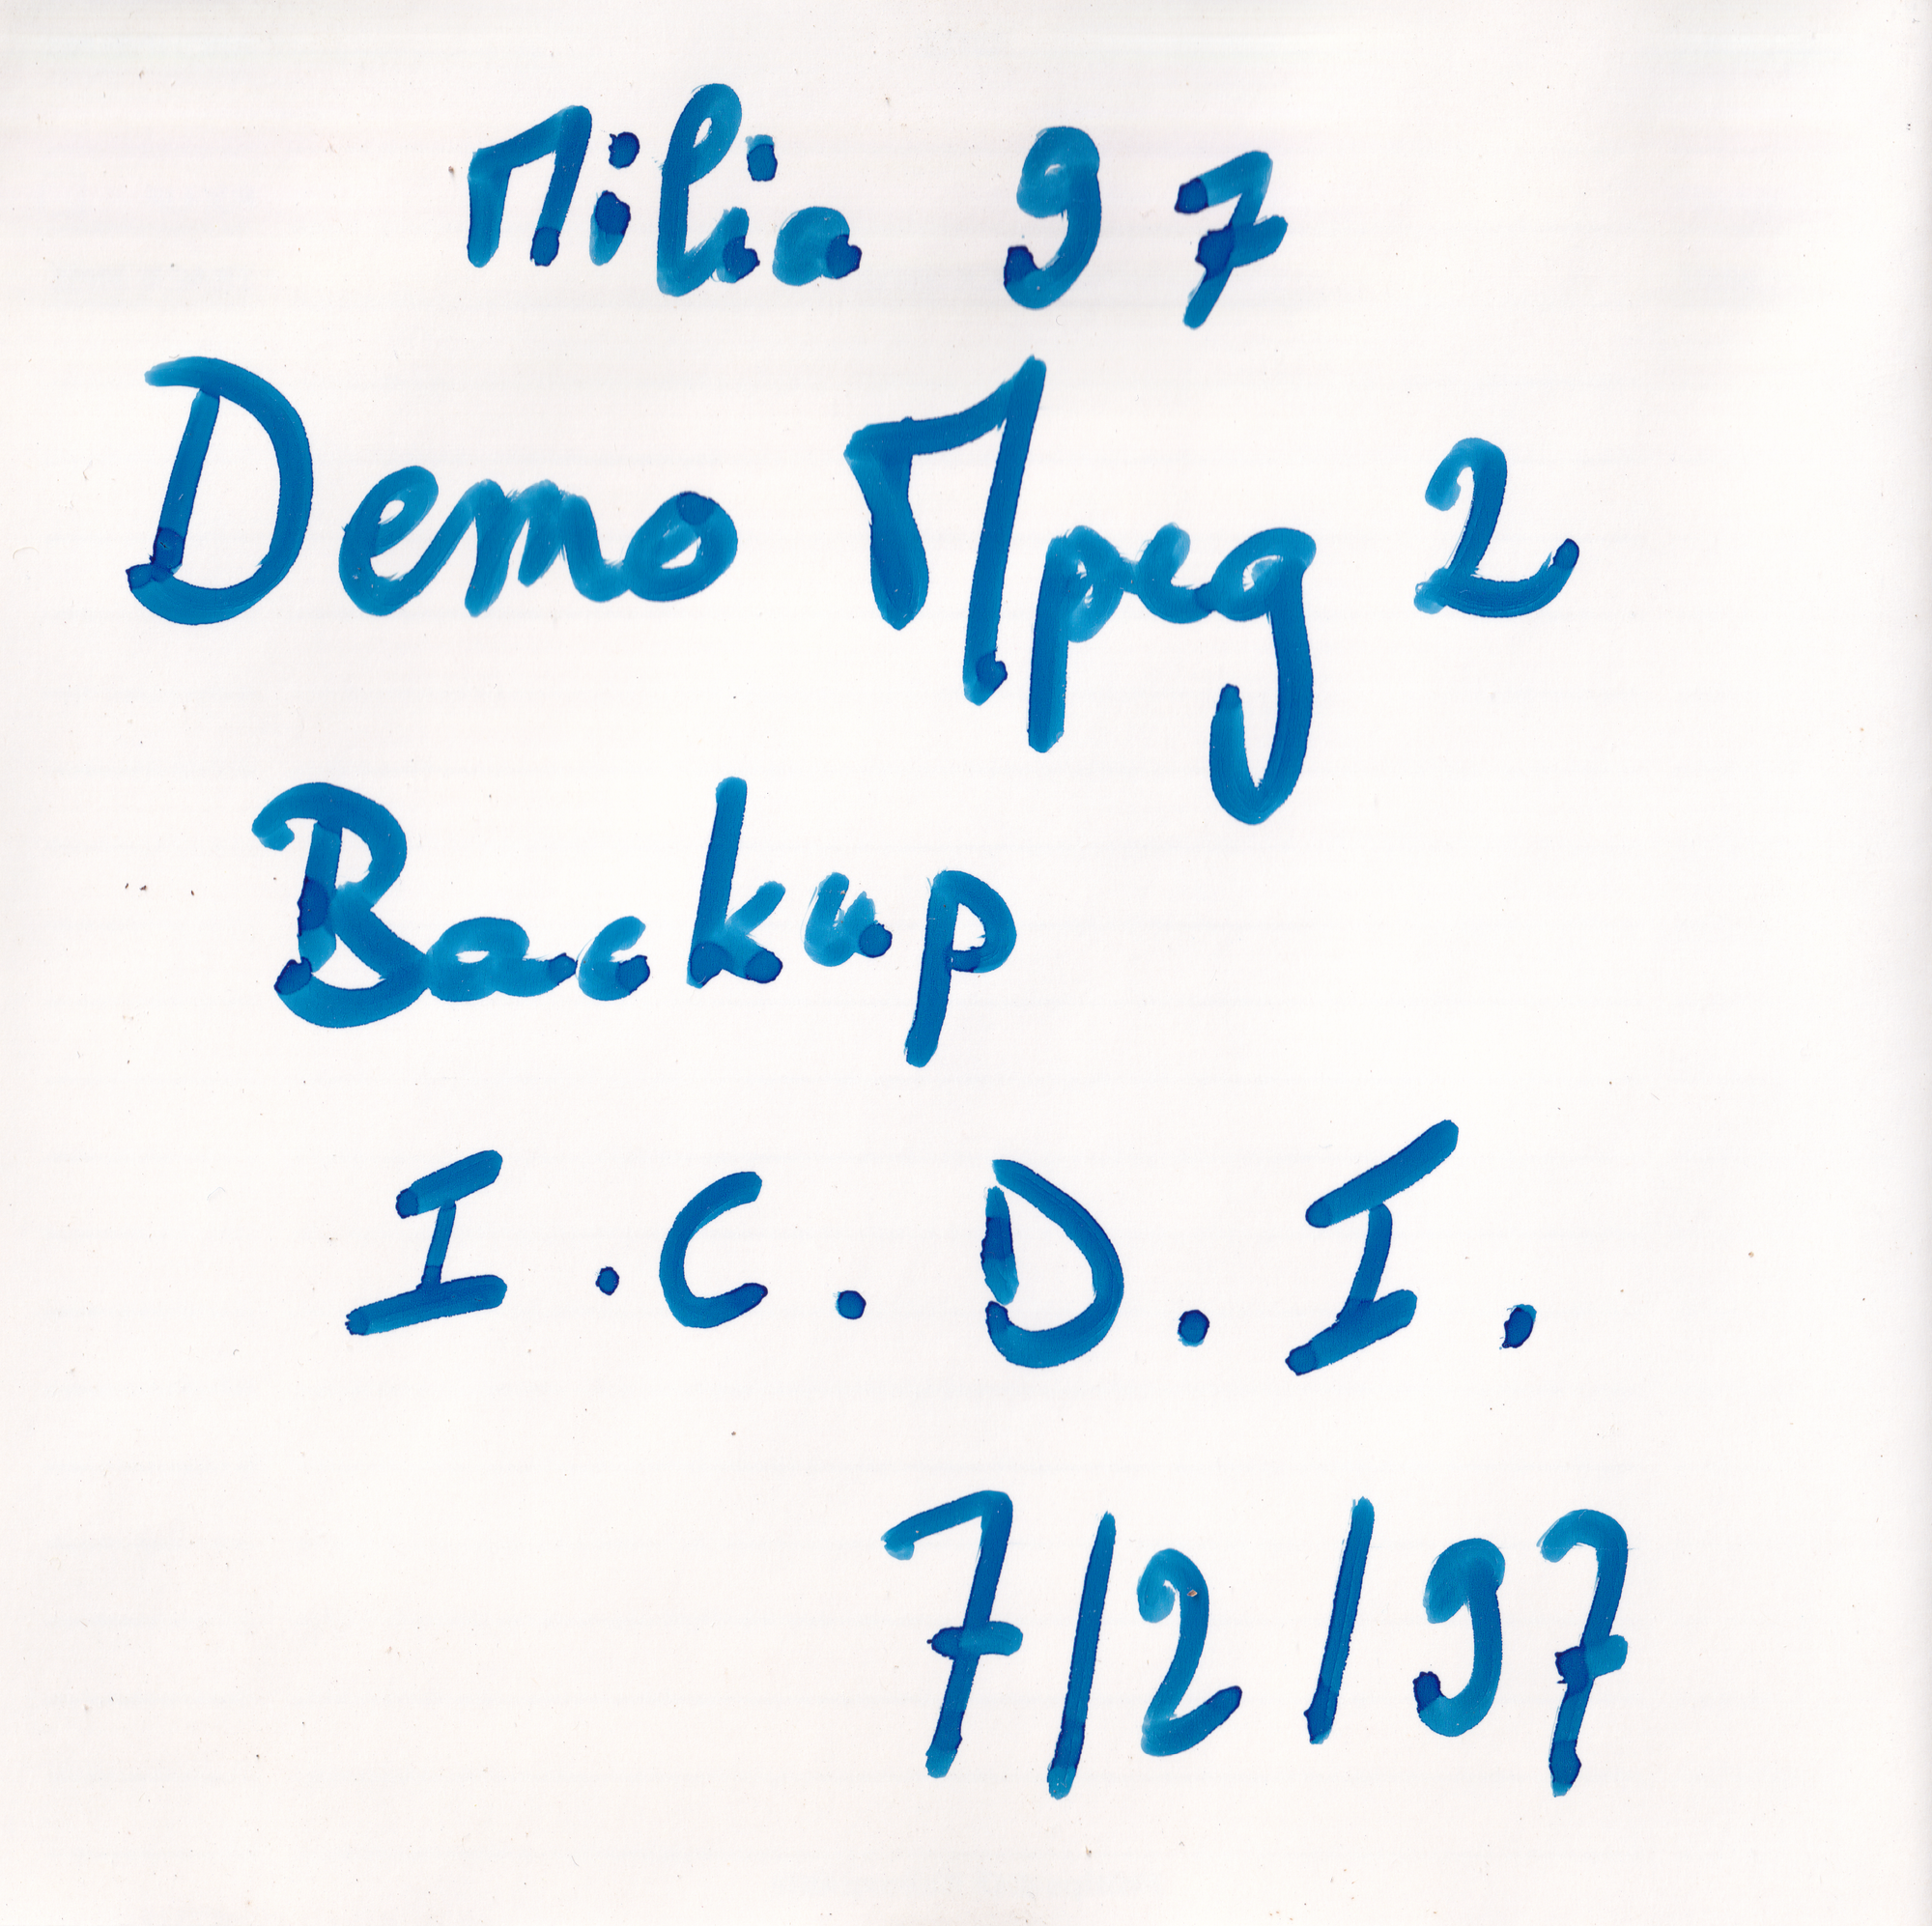 Milia 97
Demo Mpeg 2
Backup
I.C.D.I.
7/2/97